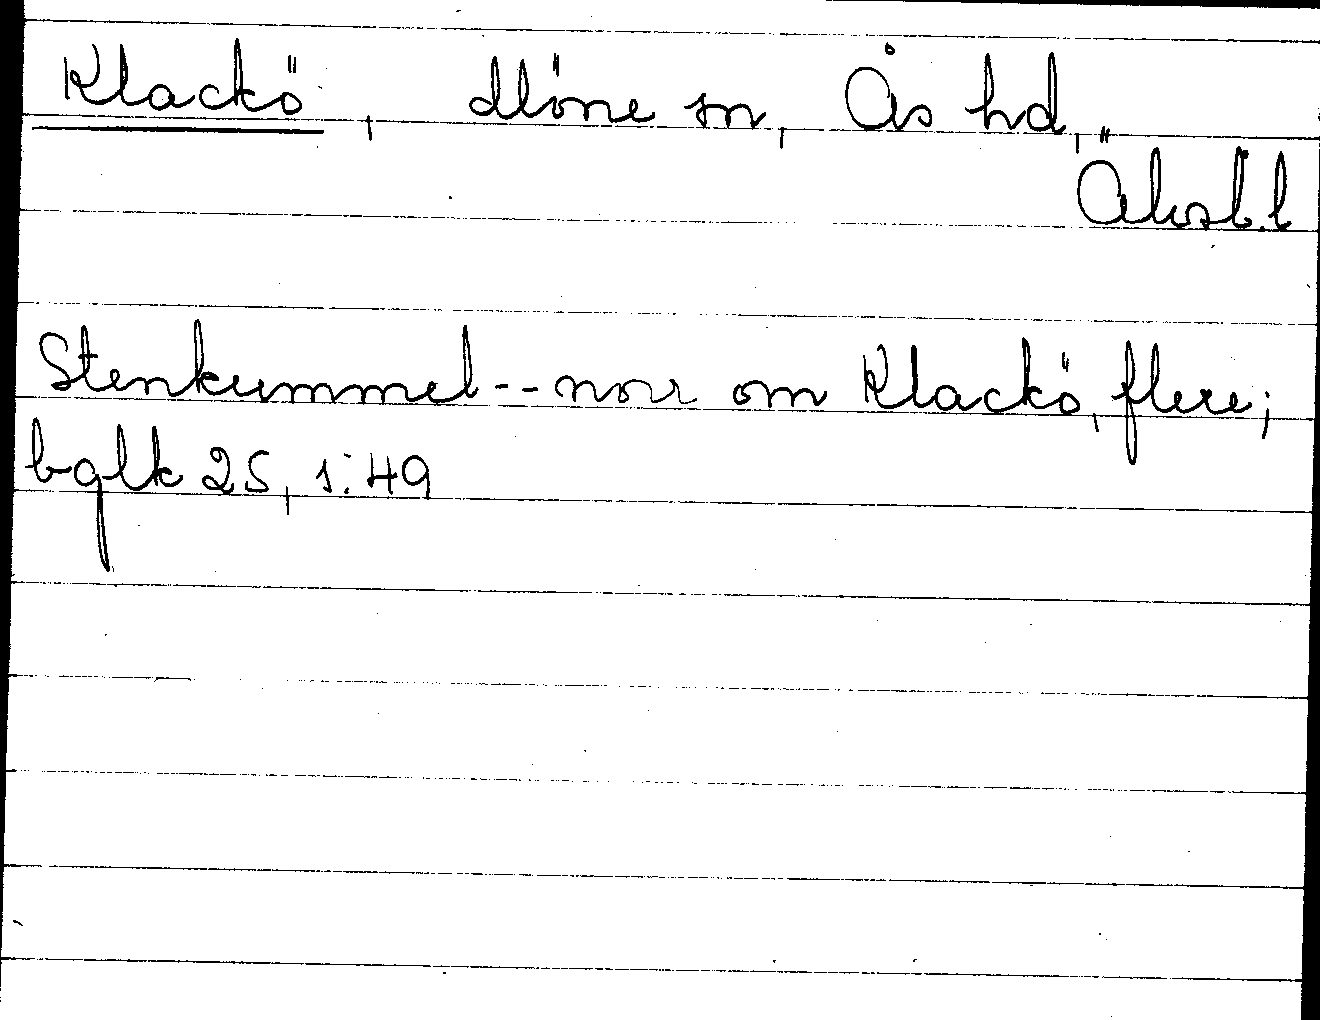 Klackö, Slöne sn, Ås hd,
Älvsb. l
Stenkummel--norr om Klackö, flere;
bglk 25, 1:49